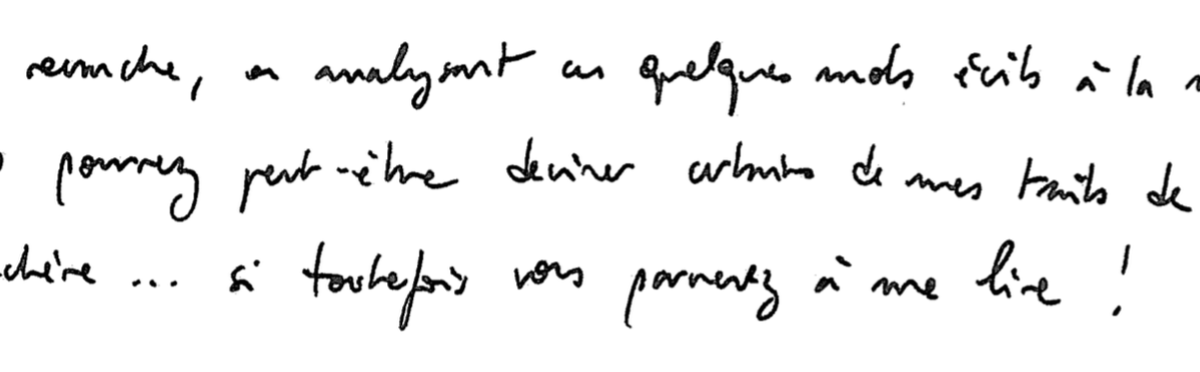 revanche, en analysant ces quelques mots écrits à la
pourrez peut-être deviner certains de mes traits de
ctère ... si toutefois vous parvenez à me lire !